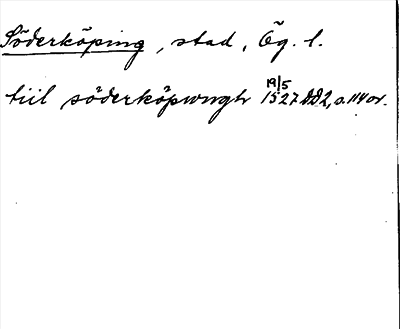 Söderköping, stad, Ög. l.
tiil söderköpwngh 19/5 1527 DD2, s. 114 or.